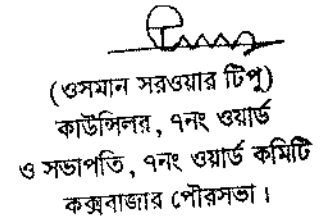 (ওসমান সরওয়ার টিপু)
কাউন্সিলর, ৭নং ওয়ার্ড
ও সভাপতি, ৭নং ওয়ার্ড কমিটি
কক্সবাজার পৌরসভা।